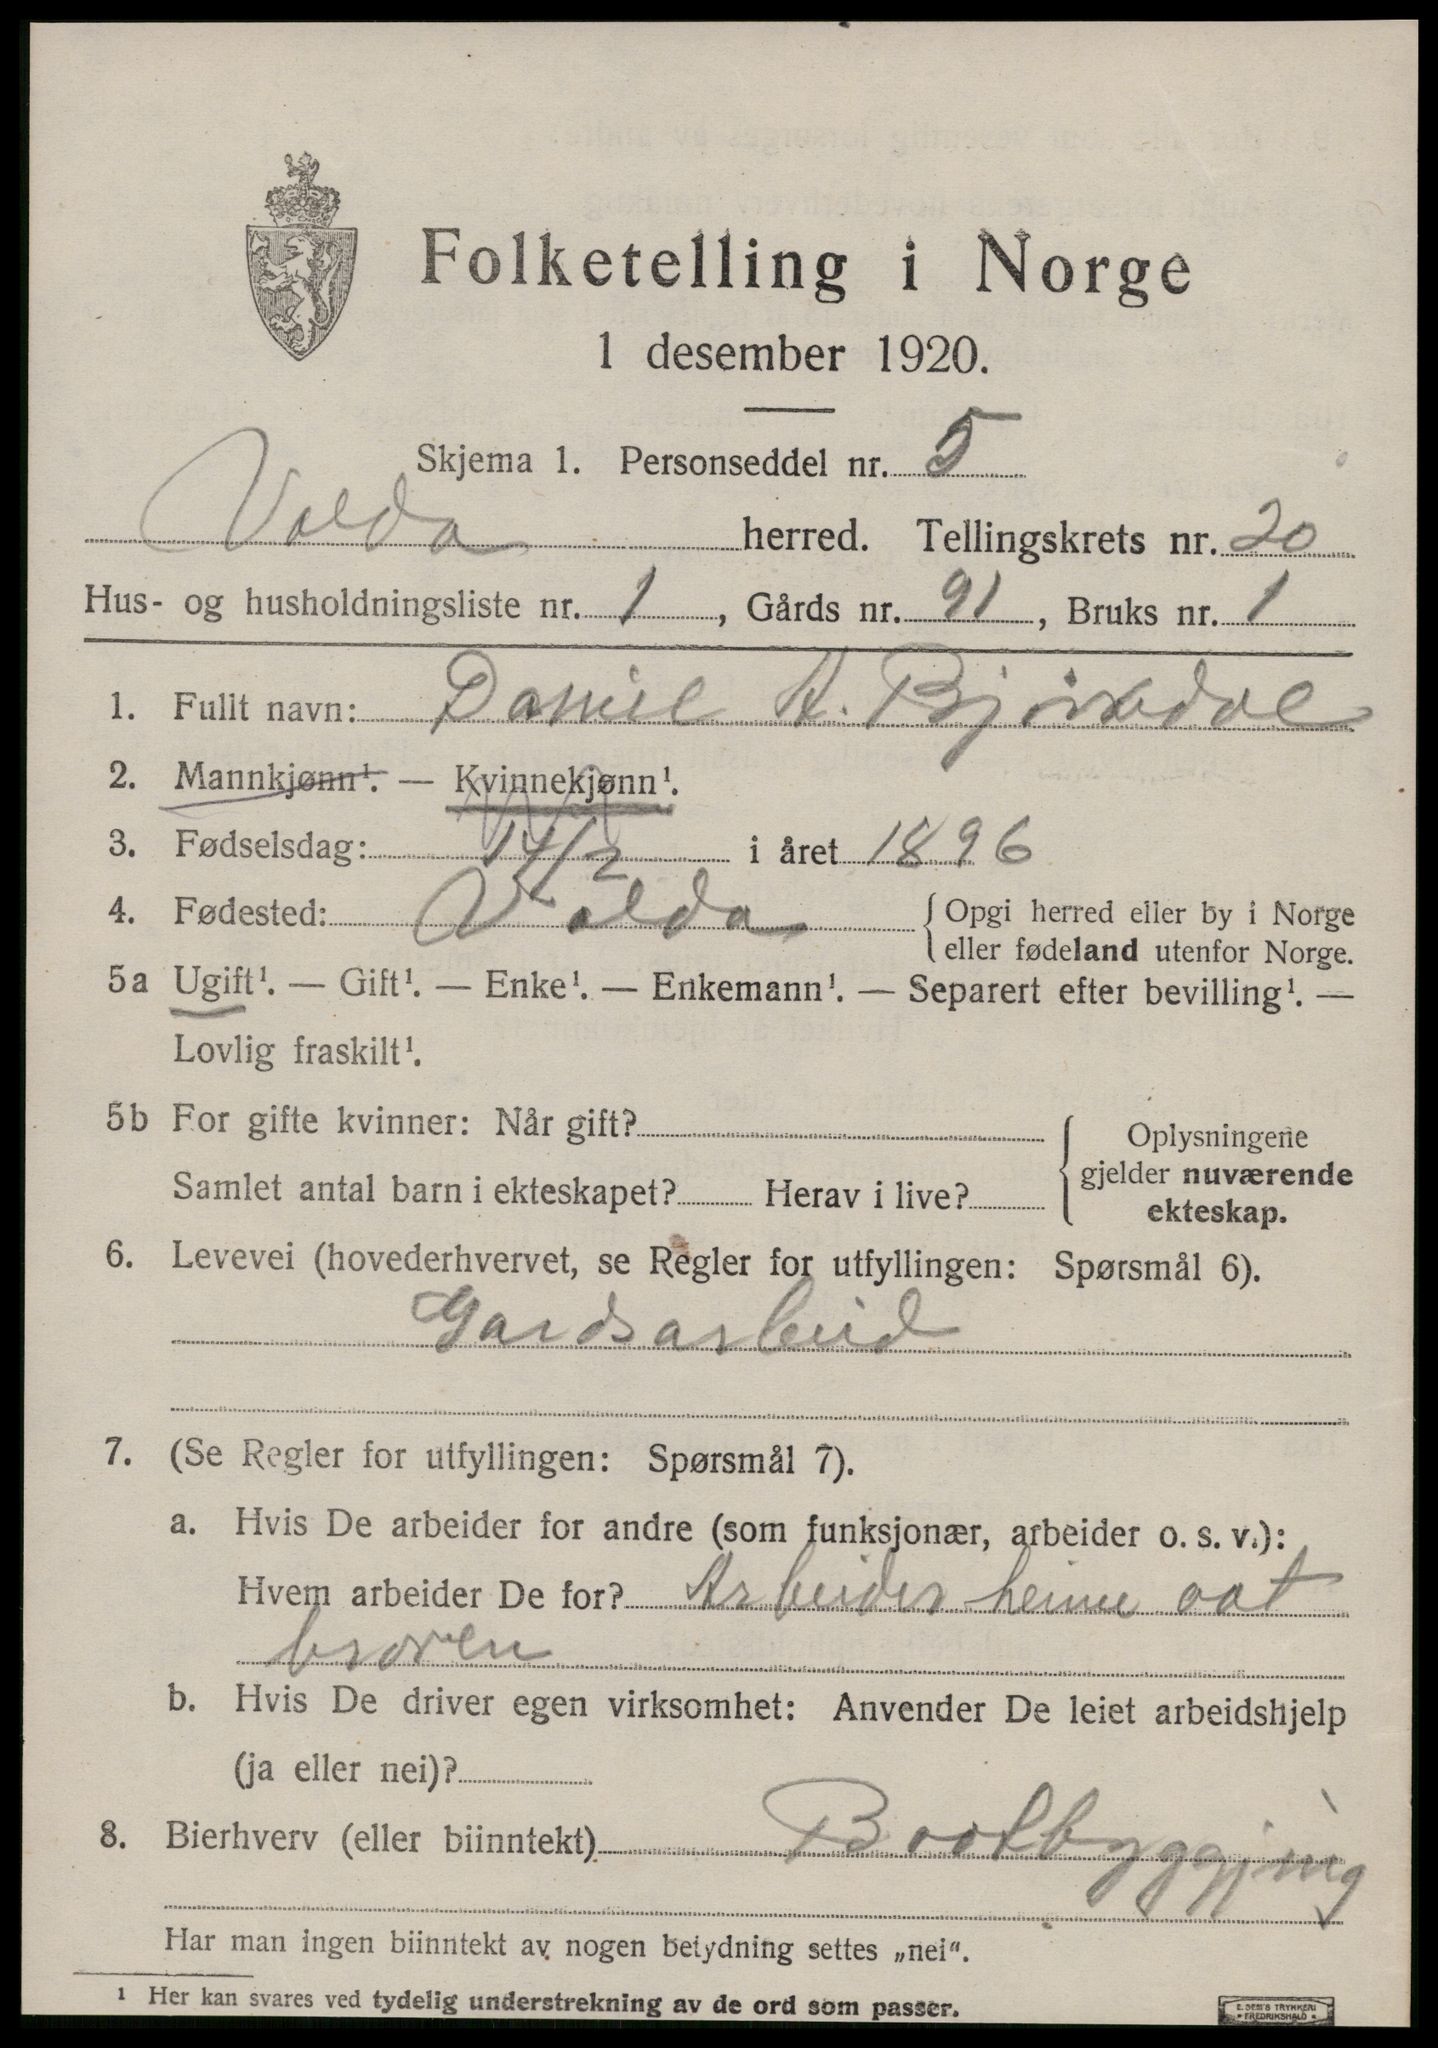 Folketelling i Norge
1 desember 1920.
Skjema 1. Personseddel nr. 5
Volda herred. Tellingskrets nr. 20
Hus- og husholdningsliste nr. 1, Gårds nr. 91, Bruks nr. 1
1. Fullt navn: Daniel A. Bjørkedal
2. Mannkjønn¹. — Kvinnekjønn¹.
3. Fødselsdag: 14/2 i året 1896
4. Fødested: Volda { Opgi herred eller by i Norge
eller fødeland utenfor Norge.
5a Ugift¹. — Gift¹. — Enke¹. — Enkemann¹. — Separert efter bevilling¹. —
Lovlig fraskilt¹.
5b For gifte kvinner: Når gift?
Samlet antal barn i ekteskapet? Herav i live?
{ Oplysningene
gjelder nuværende
ekteskap.
6. Levevei (hovederhvervet, se Regler for utfyllingen: Spørsmål 6).
Gardsarbeid
7. (Se Regler for utfyllingen: Spørsmål 7).
a. Hvis De arbeider for andre (som funksjonær, arbeider o. s. v.):
Hvem arbeider De for? Arbeider heime aat
broren
b. Hvis De driver egen virksomhet: Anvender De leiet arbeidshjelp
(ja eller nei)?
8. Bierhverv (eller biinntekt) Baatbyggjing
Har man ingen biinntekt av nogen betydning settes „nei“.
1 Her kan svares ved tydelig understrekning av de ord som passer.
E. SEM'S TRYKKERI
FREDRIKSHALD